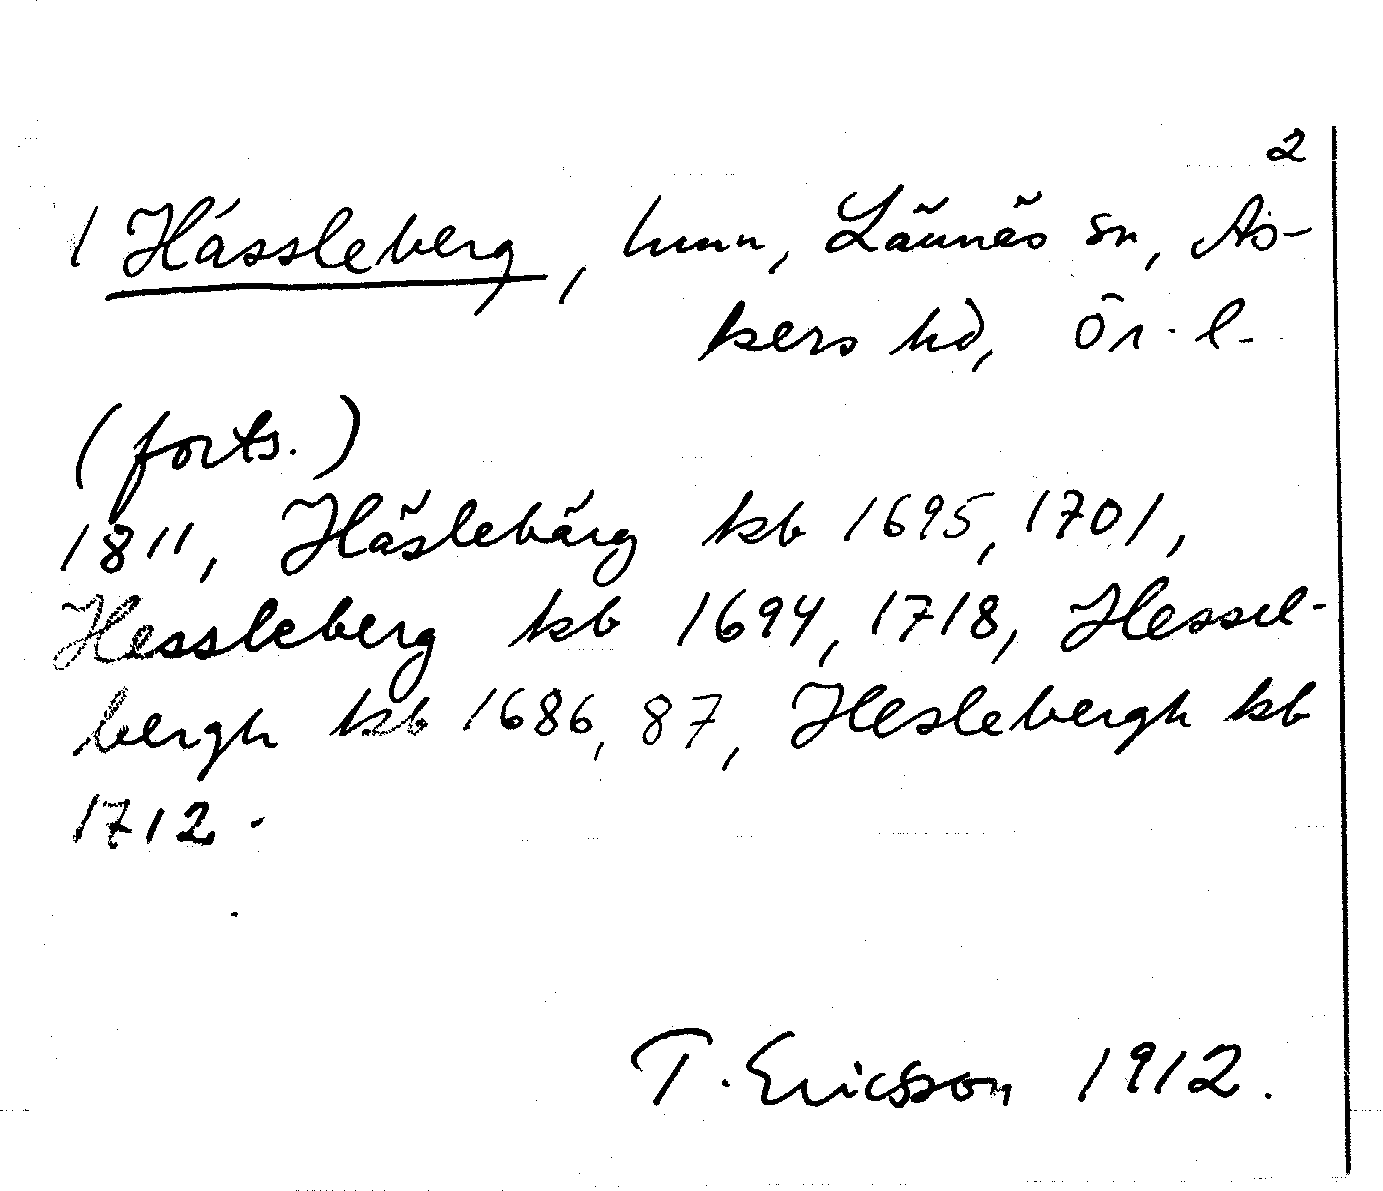 2
1 Hässleberg, hmn, Lännäs sn, As-
kers hd, Ör. l.
(forts.)
1811, Häslebärg kb 1695, 1701,
Hessleberg kb 1694, 1718, Hessel-
bergh kb 1686, 87, Heslebergh kb
1712.
T. Ericsson 1912.